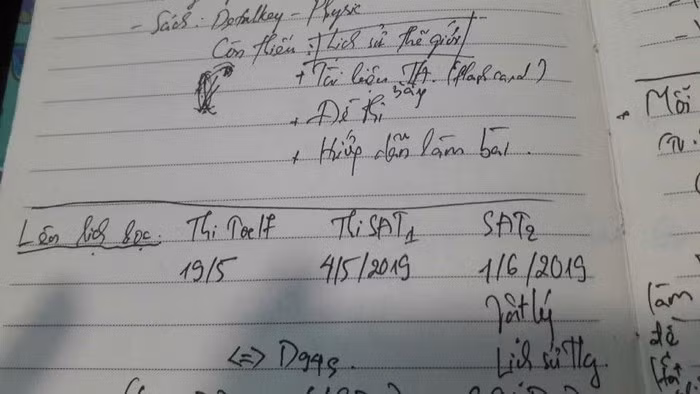 - Sách: Delalkey - Physic
Còn thiếu: Lịch sử thế giới
+ Tài liệu TA. (flash card)
sấy
+ Đề thi
+ dẫn làm bài.
Lên lịch học: Thi Toelf Thi SAT1 SAT2
19/5 4/5/2019 1/6/2019
Vật lý
<=> D99s. Lịch sử Tlg.
+ Mỗi
làm
đề